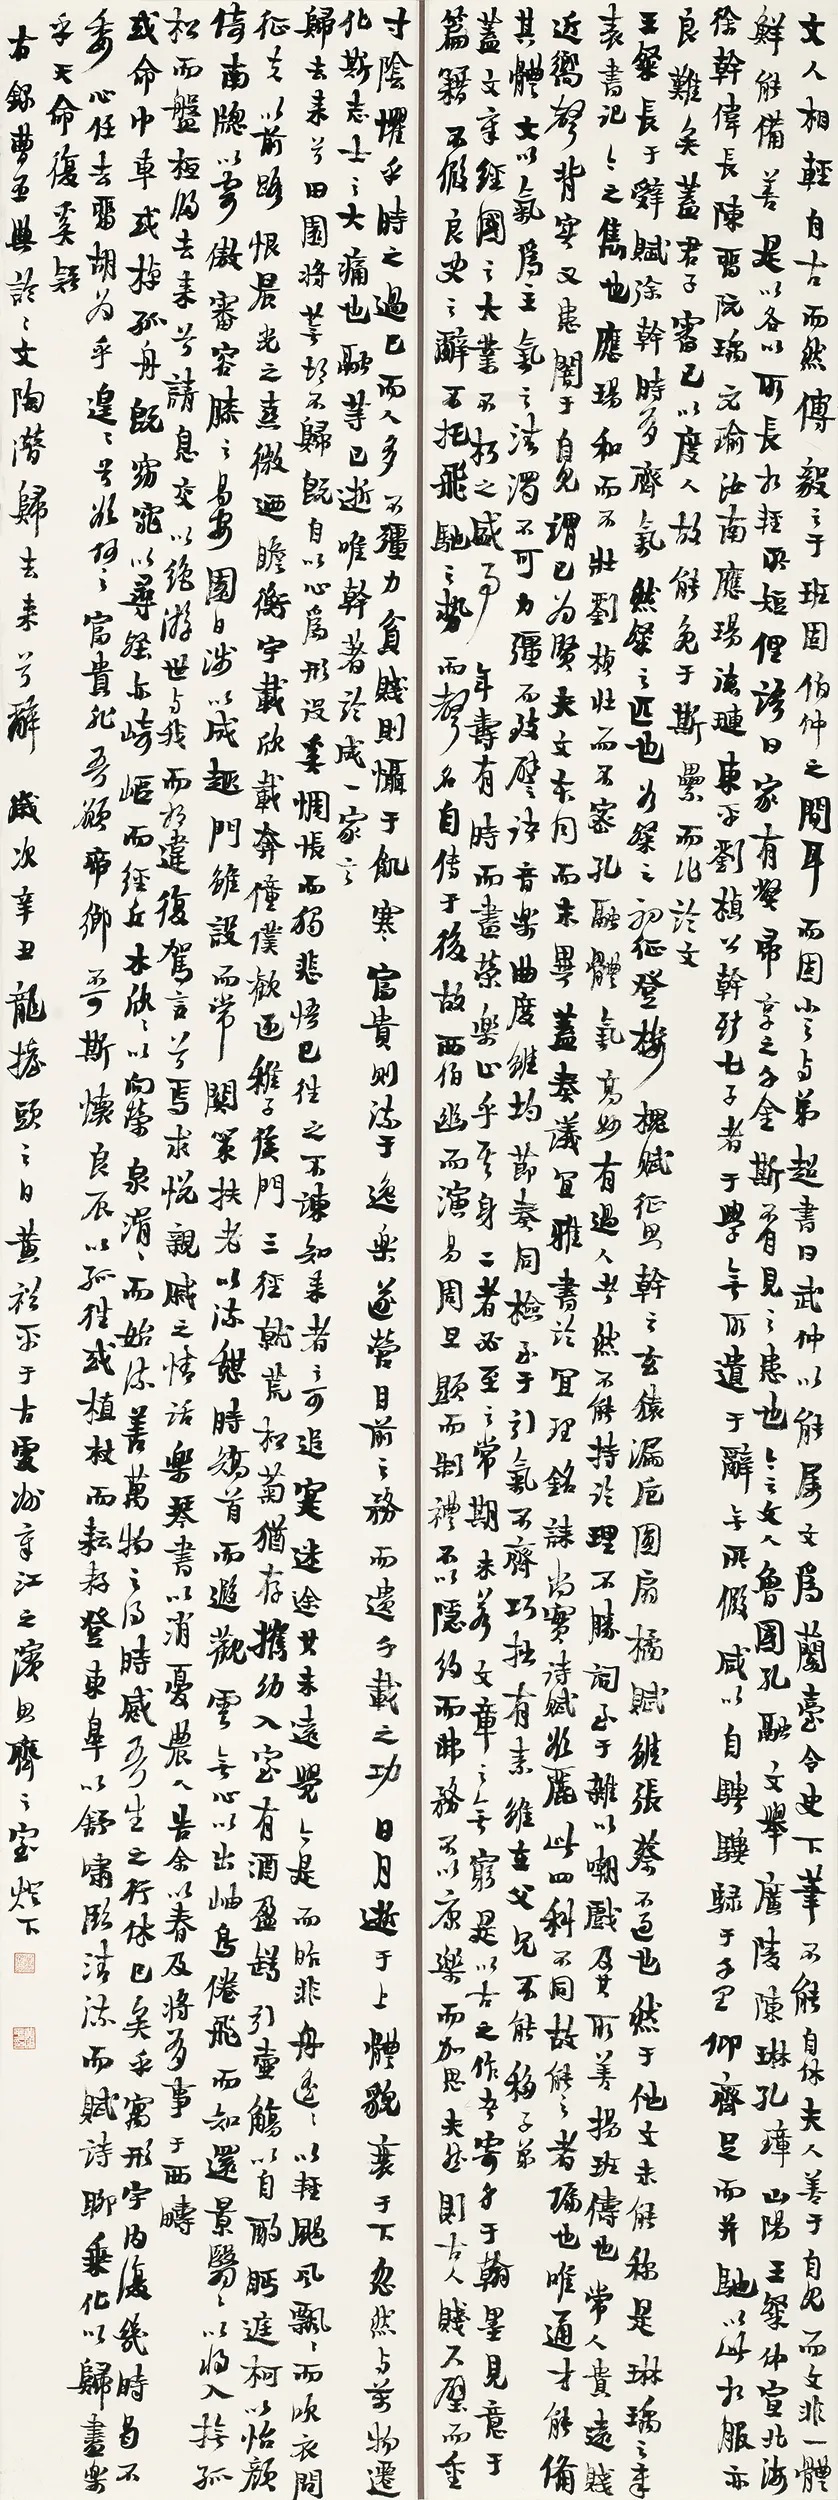 文人相輕自古而然傅毅之于班固伯仲之間耳而固小之与弟超書曰武仲以能属文爲蘭臺令史下筆不能自休夫人善于自見而文非一體
鮮能備善是以各以所長相輕所短俚語曰家有弊帚享之千金斯不自見之患也今之文人魯國孔融文舉廣陵陳琳孔璋山陽王粲仲宣北海
徐幹偉長陳留阮瑀元瑜汝南應瑒德璉東平劉楨公幹斯七子者于學無所遺于辭無所假咸以自騁驥騄于千里仰齊足而并馳以此相服亦
良難矣蓋君子審己以度人故能免于斯累而作論文
王粲長于辭賦徐幹時有齊氣然粲之匹也如粲之初征登樓槐賦征思幹之玄猿漏卮圓扇橘賦雖張蔡不過也然于他文未能称是琳瑀之章
表書記今之雋也應瑒和而不壯劉楨壯而不密孔融體氣高妙有過人者然不能持論理不勝詞至于雜以嘲戲及其所善揚班儔也常人貴遠賤
近嚮聲背實又患闇于自見謂己為賢夫文本同而末異蓋奏議宜雅書論宜理銘誄尚實詩賦欲麗此四科不同故能之者偏也唯通才能備
其體文以氣爲主氣之清濁不可力彊而致譬諸音樂曲度雖均節奏同檢至于引氣不齊巧拙有素雖在父兄不能移子弟
蓋文章經國之大業不朽之盛事年壽有時而盡榮樂止乎其身二者必至之常期未若文章之無窮是以古之作者寄身于翰墨見意于
篇籍不假良史之辭不托飛馳之勢而聲名自傳于後故西伯幽而演易周旦顯而制禮不以隱約而弗務不以康樂而加思夫然則古人賤尺璧而重
寸陰懼乎時之過已而人多不彊力貧賤則懾于飢寒富貴則流于逸樂遂營目前之務而遺千載之功日月逝于上體貌衰于下忽然与萬物遷
化斯志士之大痛也融等已逝唯幹著論成一家言
歸去来兮田園將蕪胡不歸既自以心爲形役奚惆悵而獨悲悟已往之不諫知来者之可追寔迷途其未遠覺今是而昨非舟遙遙以輕颺風飄飄而吹衣問
征夫以前路恨晨光之熹微迺瞻衡宇載欣載奔僮僕歡迎稚子候門三徑就荒松菊猶存攜幼入室有酒盈罇引壺觴以自酌眄庭柯以怡顏
倚南牕以寄傲審容膝之易安園日涉以成趣門雖設而常關策扶老以流憩時矯首而遐觀雲無心以出岫鳥倦飛而知還景翳翳以將入撫孤
松而盤桓歸去来兮請息交以絕游世与我而相違復駕言兮焉求悅親戚之情話樂琴書以消憂農人告余以春及將有事于西疇
或命巾車或棹孤舟既窈窕以尋壑亦崎嶇而經丘木欣欣以向榮泉涓涓而始流善萬物之得時感吾生之行休已矣乎寓形宇内復幾時曷不
委心任去留胡为乎遑遑兮欲何之富貴非吾願帝鄉不可期懷良辰以孤往或植杖而耘耔登東皋以舒嘯臨清流而賦詩聊乘化以歸盡樂
乎天命復奚疑
右錄曹丕典論論文陶潛歸去来兮辭 歲次辛丑龍抬頭之日黃平于古章江之濱思齊之室燈下